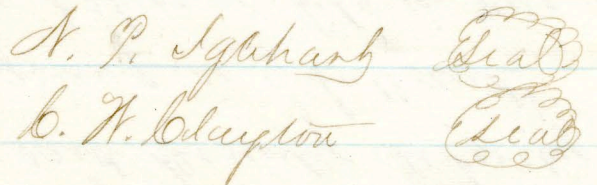 N. P. Iglehart Seal
C. W. Clayton Seal